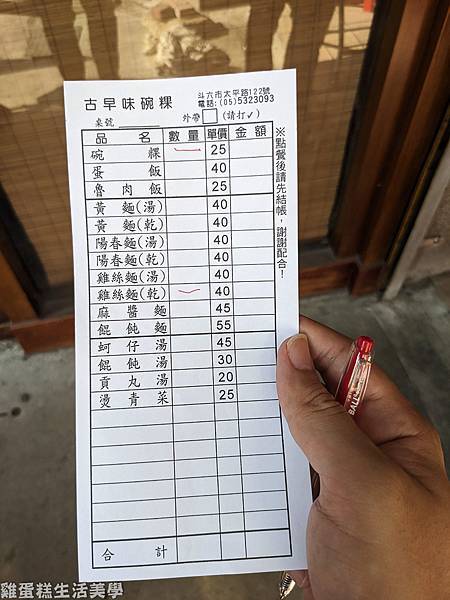 古早味碗粿
斗六市太平路122號
電話:(05)5323093
桌號
外帶 (請打✓)
品名 數量 單價 金額
碗粿 一 25
蛋飯 40
魯肉飯 25
黃麵(湯) 40
黃麵(乾) 40
陽春麵(湯) 40
陽春麵(乾) 40
雞絲麵(湯) 40
雞絲麵(乾) 一 40
麻醬麵 45
餛飩麵 55
蚵仔湯 45
餛飩湯 30
貢丸湯 20
燙青菜 25
合計
※點餐後請先結帳,謝謝配合!
雞蛋糕生活美學